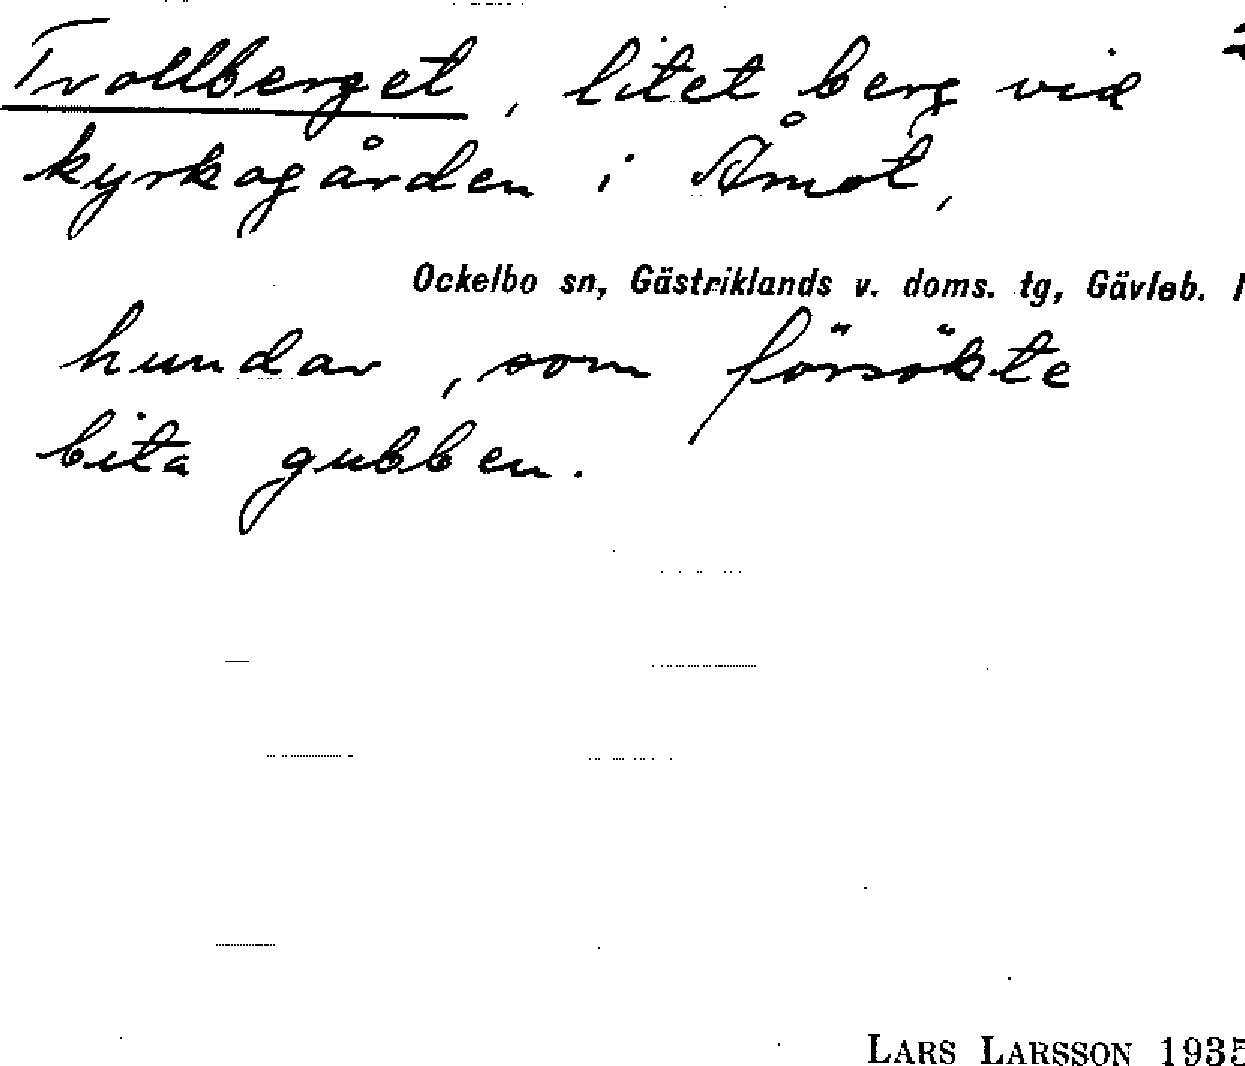 Trollberget, litet berg vid
kyrkogården i Åmot,
Ockelbo sn, Gästriklands v. doms. tg, Gävleb.
hundar, som försökte
bita gubben.
LARS LARSSON 1935